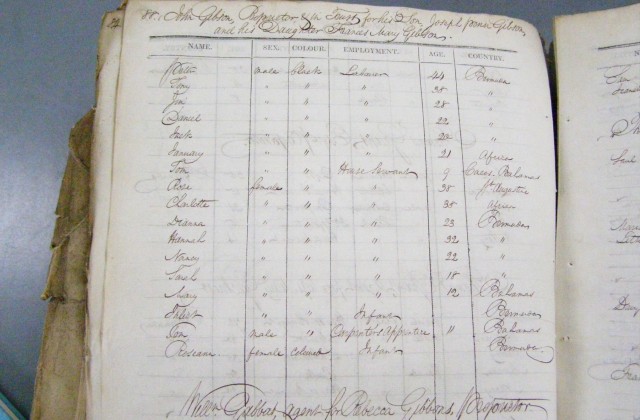 Jno. Gibbon, Proprietor & in Trust for his 2 Son Joseph Gibbon,
and his Daughter Frances Mary Gibbons.
NAME. SEX. COLOUR. EMPLOYMENT. AGE. COUNTRY.
Peter male Black Labourer 44 Bermuda
Tony " " " 35 "
Jim " " " 28 "
Daniel " " " 22 "
Jack " " " 22 "
January " " " 21 Africa
Tom " " House Servant 9 Bahamas
Rose female " " 38 St. Augustine
Charlotte " " " 35 Africa
Dianna " " " 23 Bermudas
Hannah " " " 32 "
Nancy " " " 22 "
Sarah " " " 18 "
Mary " " " 12 Bahamas
" " Infant Bermudas
Tom male " Carpenters Apprentice 11 Bahamas
Roseann female coloured Infant Bermuda
agent for Rebecca Gibbons, Proprietor